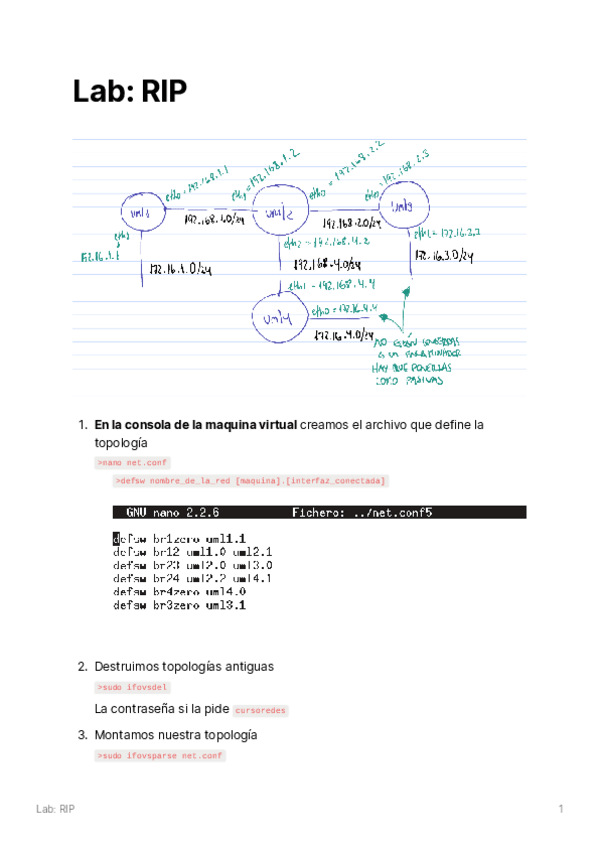 Lab: RIP
eth0 = 192.168.1.1
eth1 = 192.168.1.2
eth0 = 192.168.2.2
eth0 = 192.168.2.3
uml1
uml2
uml3
192.168.1.0/24
192.168.2.0/24
eth1
172.16.1.1
172.16.1.0/24
eth2 = 192.168.4.2
192.168.4.0/24
172.16.3.0/24
eth1 = 192.168.4.4
uml4
eth0 = 172.16.4.4
172.16.4.0/24
NO ESTÁN CONECTADAS
A UN ENCAMINADOR
HAY QUE PONERLAS
COMO PASIVAS
1. En la consola de la maquina virtual creamos el archivo que define la
topología
>nano net.conf
>defsw nombre_de_la_red [maquina].[interfaz_conectada]
GNU nano 2.2.6 Fichero: ../net.conf5
defsw br1zero uml1.1
defsw br12 uml1.0 uml2.1
defsw br23 uml2.0 uml3.0
defsw br24 uml2.2 uml4.1
defsw br4zero uml4.0
defsw br3zero uml3.1
2. Destruimos topologías antiguas
>sudo ifovsdel
La contraseña si la pide cursoredes
3. Montamos nuestra topología
>sudo ifovsparse net.conf
Lab: RIP 1